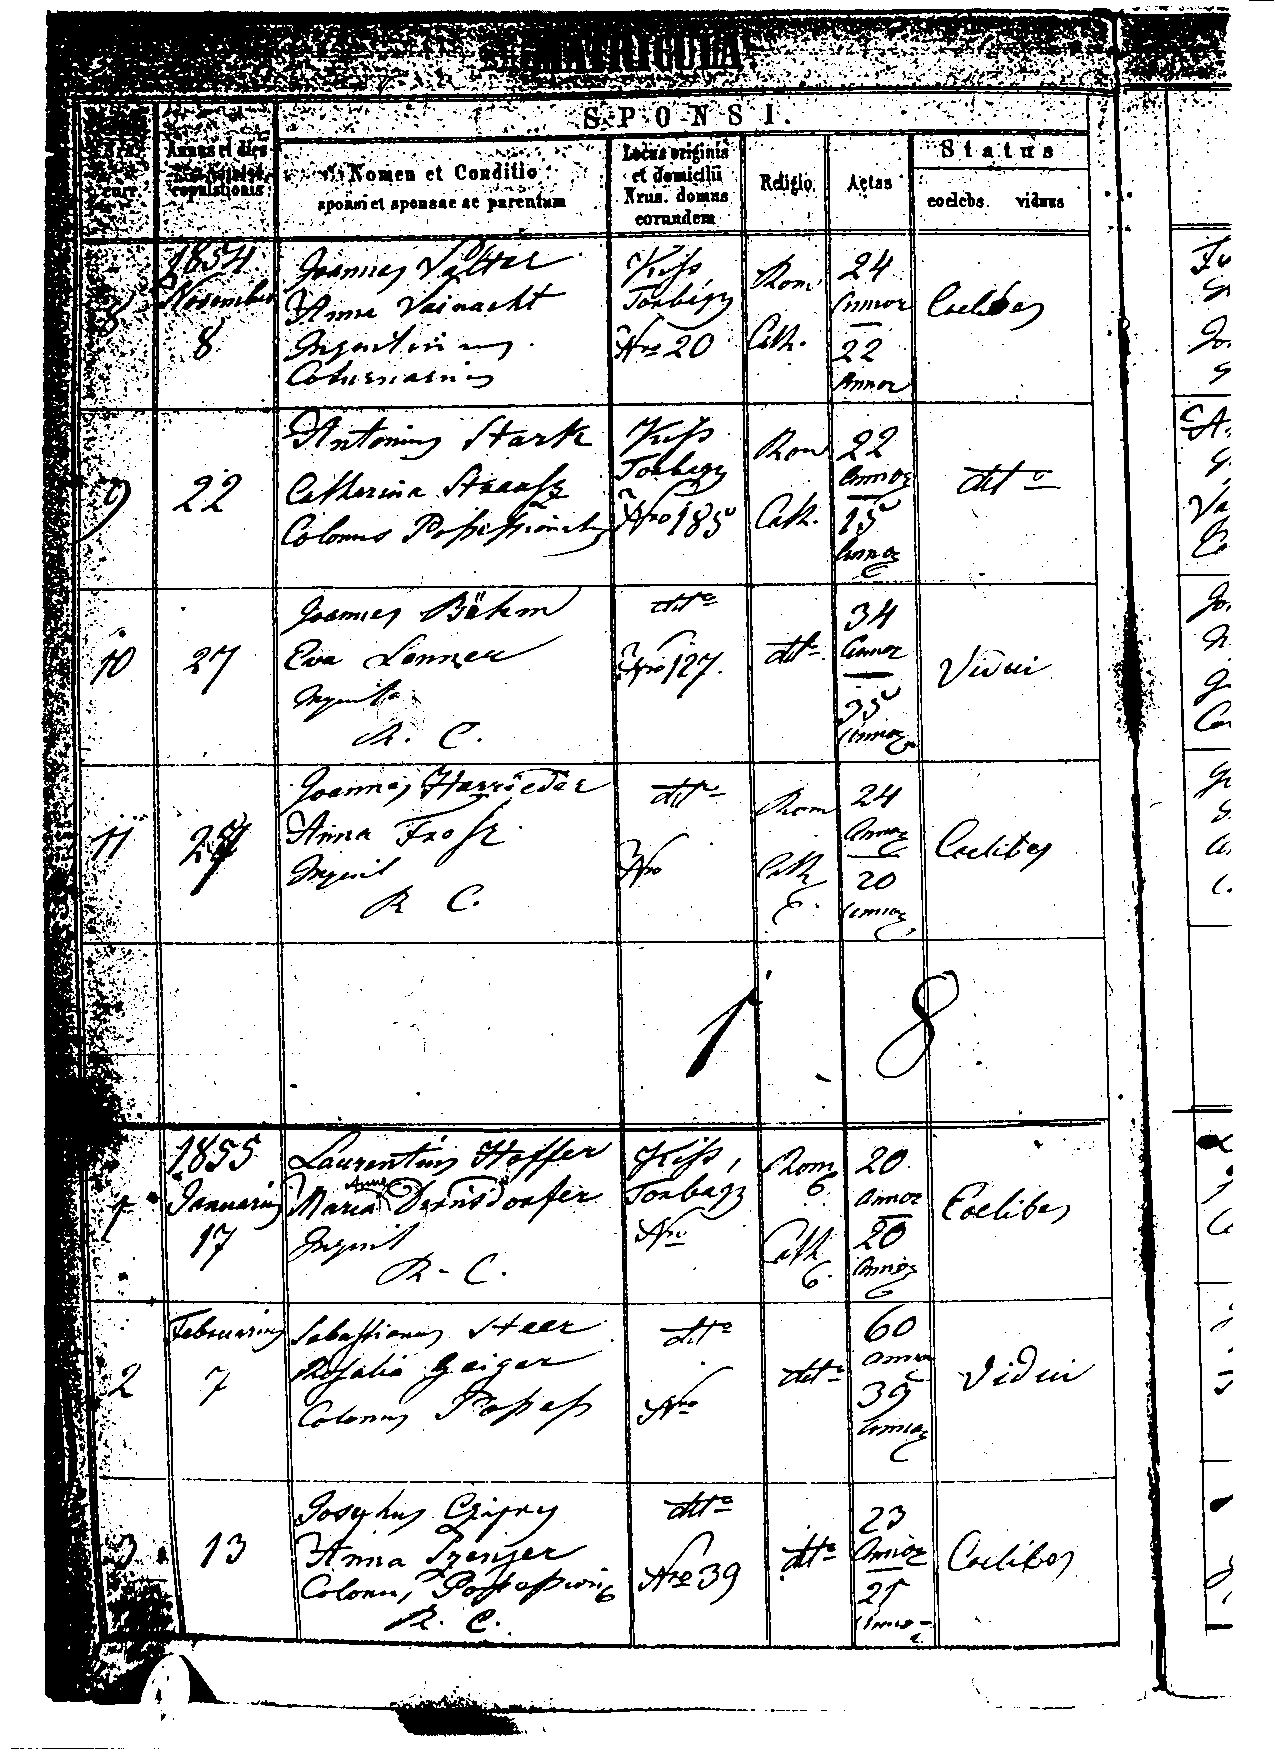 MATRICULA
SPONSI.
Annus et dies
copulationis
Nomen et Conditio
sponsi et sponsae ac parentum
Locus originis
et domicilii
Nrus. domus
eorundem
Religio
Aetas
Status
coelebs. viduus
8
1854
November
8
Joannes
Anna Vainacht
Coturnarius
Kiss
Torbágy
Nro 20
Rom
Cath.
24
Annor
22
Annor
Coelibes
9
22
Antonius Stark
Catharina Strausz
Colonus Possessionatus
Kiss
Torbágy
Nro 185
Rom
Cath.
22
Annor
15
Annor
ditto
10
27
Joannes Böhm
Eva Lenner
Inquil
R. C.
ditto
Nro 127.
ditto
34
Annor
35
Annor
Vidui
11
27
Joannes Harrieder
Anna Frosz
Inquil
R C.
ditto
Nro
Rom
Cath
24
Annor
20
Annor
Coelibes
1 8
1
1855
Januarius
17
Laurentius Hoffer
Anna
Maria Dernsdorfer
Inquil
R. C.
Kiss,
Torbágy
Nro
Rom
Cath
20
Annor
20
Annor
Coelibes
2
Februarius
7
Sebastianus Staer
Rosalia Geiger
Colonus Possess
ditto
Nro
ditto
60
Annor
39
Annor
Vidui
3
13
Josephus
Anna
Colonus
R. C.
ditto
Nro 39
ditto
23
Annor
21
Annor
Coelibes